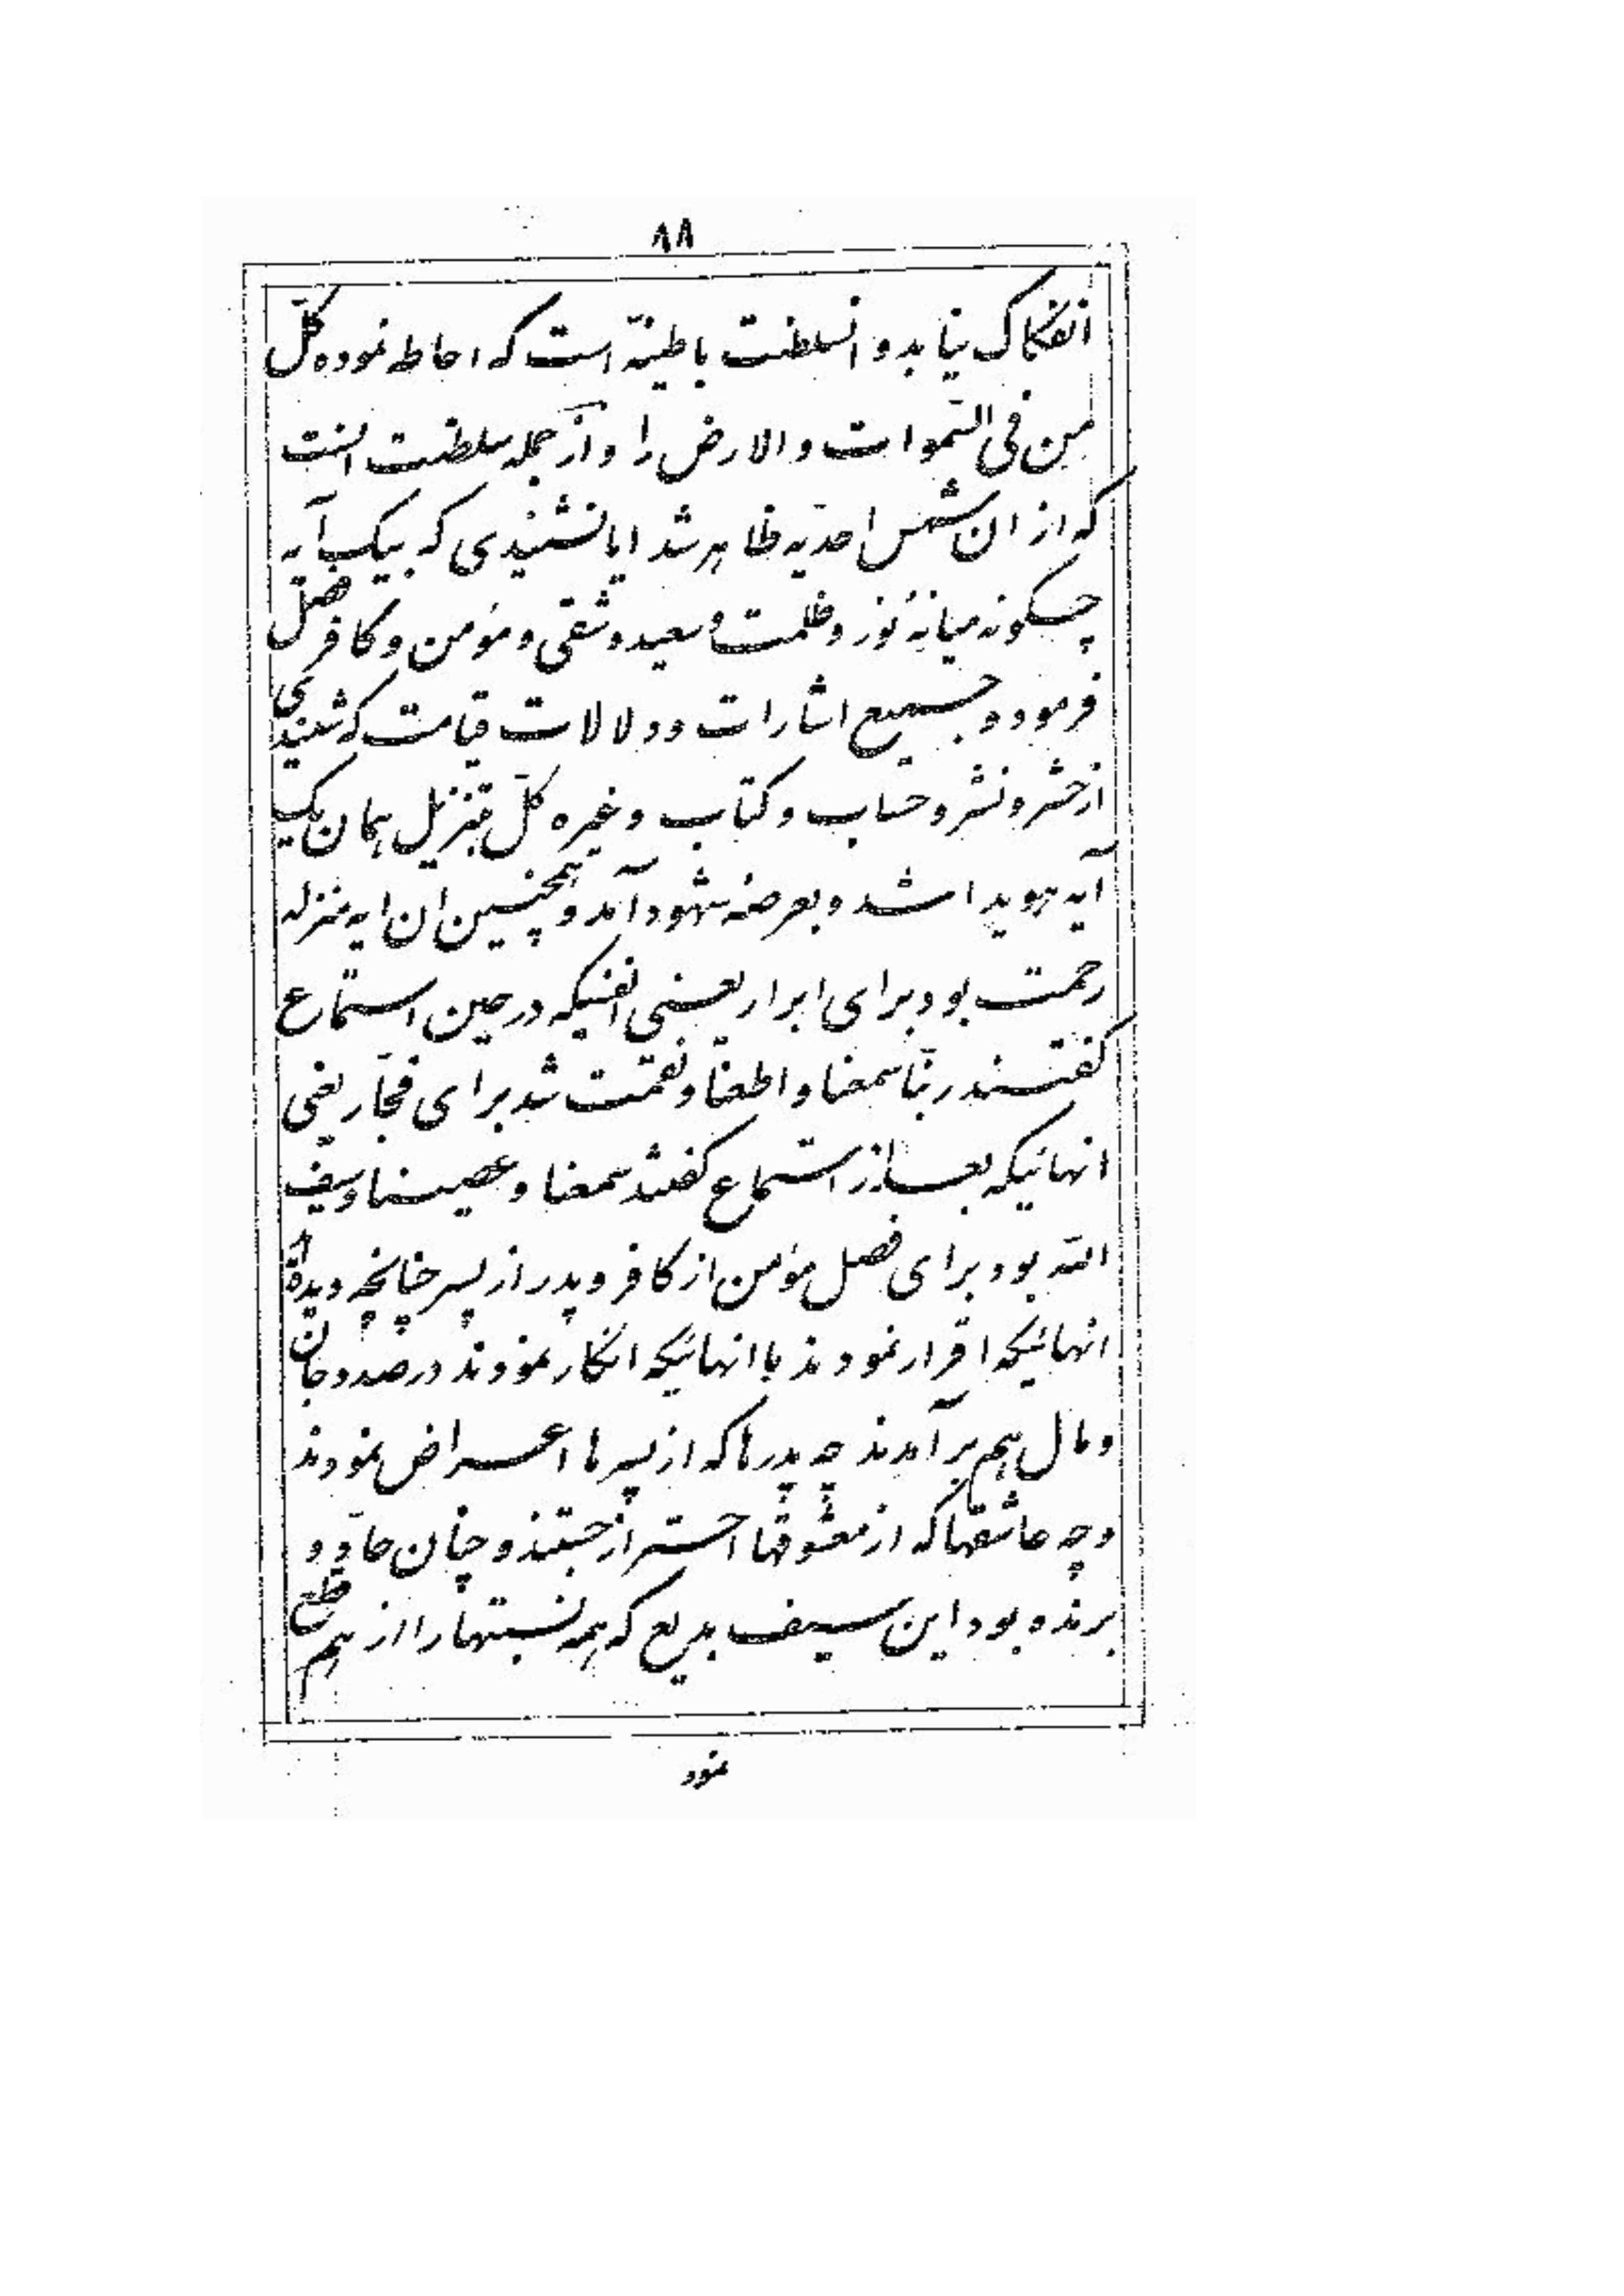 ۸۸
انفکاک نیابد و انسلطنت باطنیّه است که احاطه نموده کلّ
من فی السّموات و الارض را و از جمله سلطنت انست
که از ان شمس احدیّه ظاهر شد ایا نشنیدی که بیک آیه
چگونه میانهٔ نور و ظلمت و سعید و شقی و مؤمن و کافر فصل
فرمود و جمیع اشارات و دلالات قیامت که شنیدی
از حشر و نشر و حساب و کتاب و غیره کلّ بتنزیل همان یک
آیه هویدا شد و بعرصه شهود آمد و همچنین ان ایه منزله
رحمت بود برای ابرار یعنی انفسیکه در حین استماع
گفتند ربّنا سمعنا و اطعنا و نقمت شد برای فجّار یعنی
انهائیکه بعد از استماع گفتند سمعنا و عصینا و سیف
اللّه بود برای فصل مؤمن از کافر و پدر از پسر چنانچه دیدهٔ
انهائیکه اقرار نمودند با انهائیکه انکار نمودند در صدد جان
و مال هم بر آمدند چه پدرها که از پسرها اعراض نمودند
و چه عاشقها که از معشوقها احتراز جستند و چنان حادّ و
برنده بود این سیف بدیع که همه نسبتها را از هم قطع
نمود